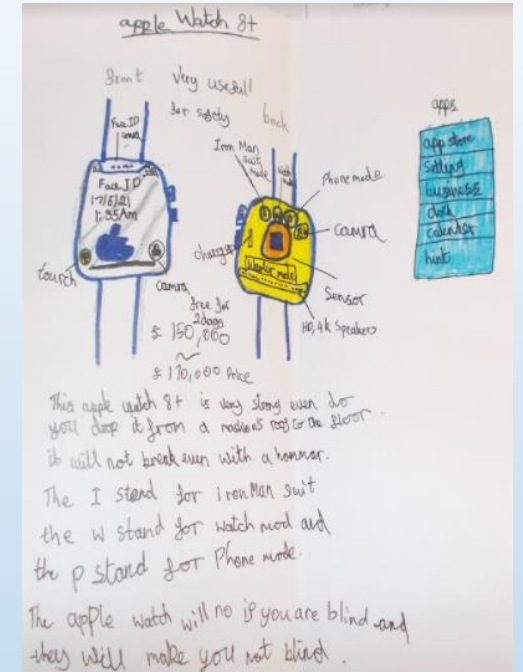 apple Watch 8+
front
Very usefull
for safety
back
Face ID
Iron Man
suit
mode
Phone mode
camra
Face ID
17/5/21
1:35Am
charger
Sensor
HD, 4k Speakers
tourch
camra
free for
2 days
£ 150,000
£ 170,000 Price
apps
app store
Setting
business
clock
calendar
hint
This apple watch 8+ is very strong even do
you drop it from a roof to the floor.
it will not break even with a hammar.
The I stand for iron Man suit
the w stand for watch mod and
the p stand for Phone mode.
The apple watch will no if you are blind and
they will make you not blind.